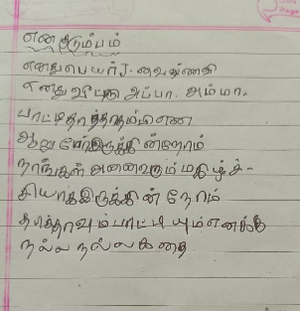 என குடும்பம்
எனது பெயர் J. வைஷ்ணதி
எனது வீட்டில் அப்பா. அம்மா.
பாட்டி தாத்தா தம்பி என
ஆறு பேர் இருக்கின்றோம்
நாங்கள் அனைவரும் மகிழ்ச்-
சியாக இருக்கின்றோம்
தாத்தாவும் பாட்டியும் எனக்கு
நல்ல நல்ல கதை